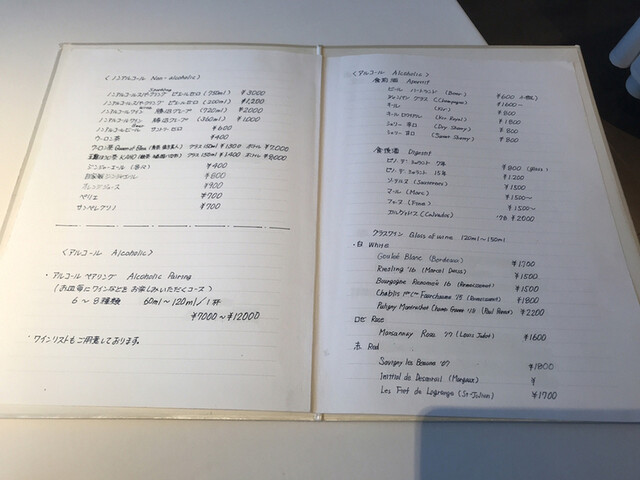 〈ノンアルコール Non-alcoholic〉
Sparkling
ノンアルコールスパークリング ピエール ゼロ (750ml) ¥3000
ノンアルコールスパークリング ピエール ゼロ (200ml) ¥1,200
ノンアルコールワイン 勝沼グレープ (720ml) ¥2000
ノンアルコールワイン 勝沼グレープ (360ml) ¥1000
ノンアルコールビール サントリー ゼロ ¥600
ウーロン茶 ¥400
ウーロン茶 Queen of Blue グラス 150ml ¥1300 ボトル ¥7000
KAHO グラス 150ml ¥1400 ボトル ¥8000
ジンジャーエール (辛口) ¥400
自家製 ジンジャエール ¥800
オレンジジュース ¥900
ペリエ ¥700
サンペレグリノ ¥700
〈アルコール Alcoholic〉
・アルコール ペアリング Alcoholic Pairing
(お皿毎にワインなどをお楽しみいただくコース)
6〜8種類 60ml〜120ml/1杯
¥7000〜¥12000
・ワインリストもご用意しております。
〈アルコール Alcoholic〉
食前酒 Aperitif
ビール (Beer) ¥600
シャンパン グラス (Champagne) ¥1600〜
キール (Kir) ¥800
キールロワイヤル (Kir Royal) ¥1800
シェリー 辛口 (Dry Sherry) ¥800
シェリー 甘口 (Sweet Sherry) ¥800
食後酒 Digestif
ピノー デ シャラント 7年 ¥800 (glass)
ピノー デ シャラント 15年 ¥1200
ソーテルヌ (Sauternes) ¥1500
マール (Marc) ¥1500〜
フィーヌ (Fine) ¥1500〜
カルヴァドス (Calvados) '76 ¥2000
グラスワイン Glass of wine 120ml〜150ml
・白 White
Goulée Blanc (Bordeaux) ¥1700
Riesling '16 (Marcel Deiss) ¥1500
Bourgogne '16 (Remoissenet) ¥1500
Chablis 1er Fourchaume '15 (Remoissenet) ¥1800
Puligny Montrachet '13 ¥2200
ロゼ Rosé
Marsannay Rosé '17 (Louis Jadot) ¥1600
赤 Red
Savigny lès Beaune '07 ¥1800
Initial de Desmirail (Margaux) ¥
Les Fief de Lagrange (St-Julien) ¥1700